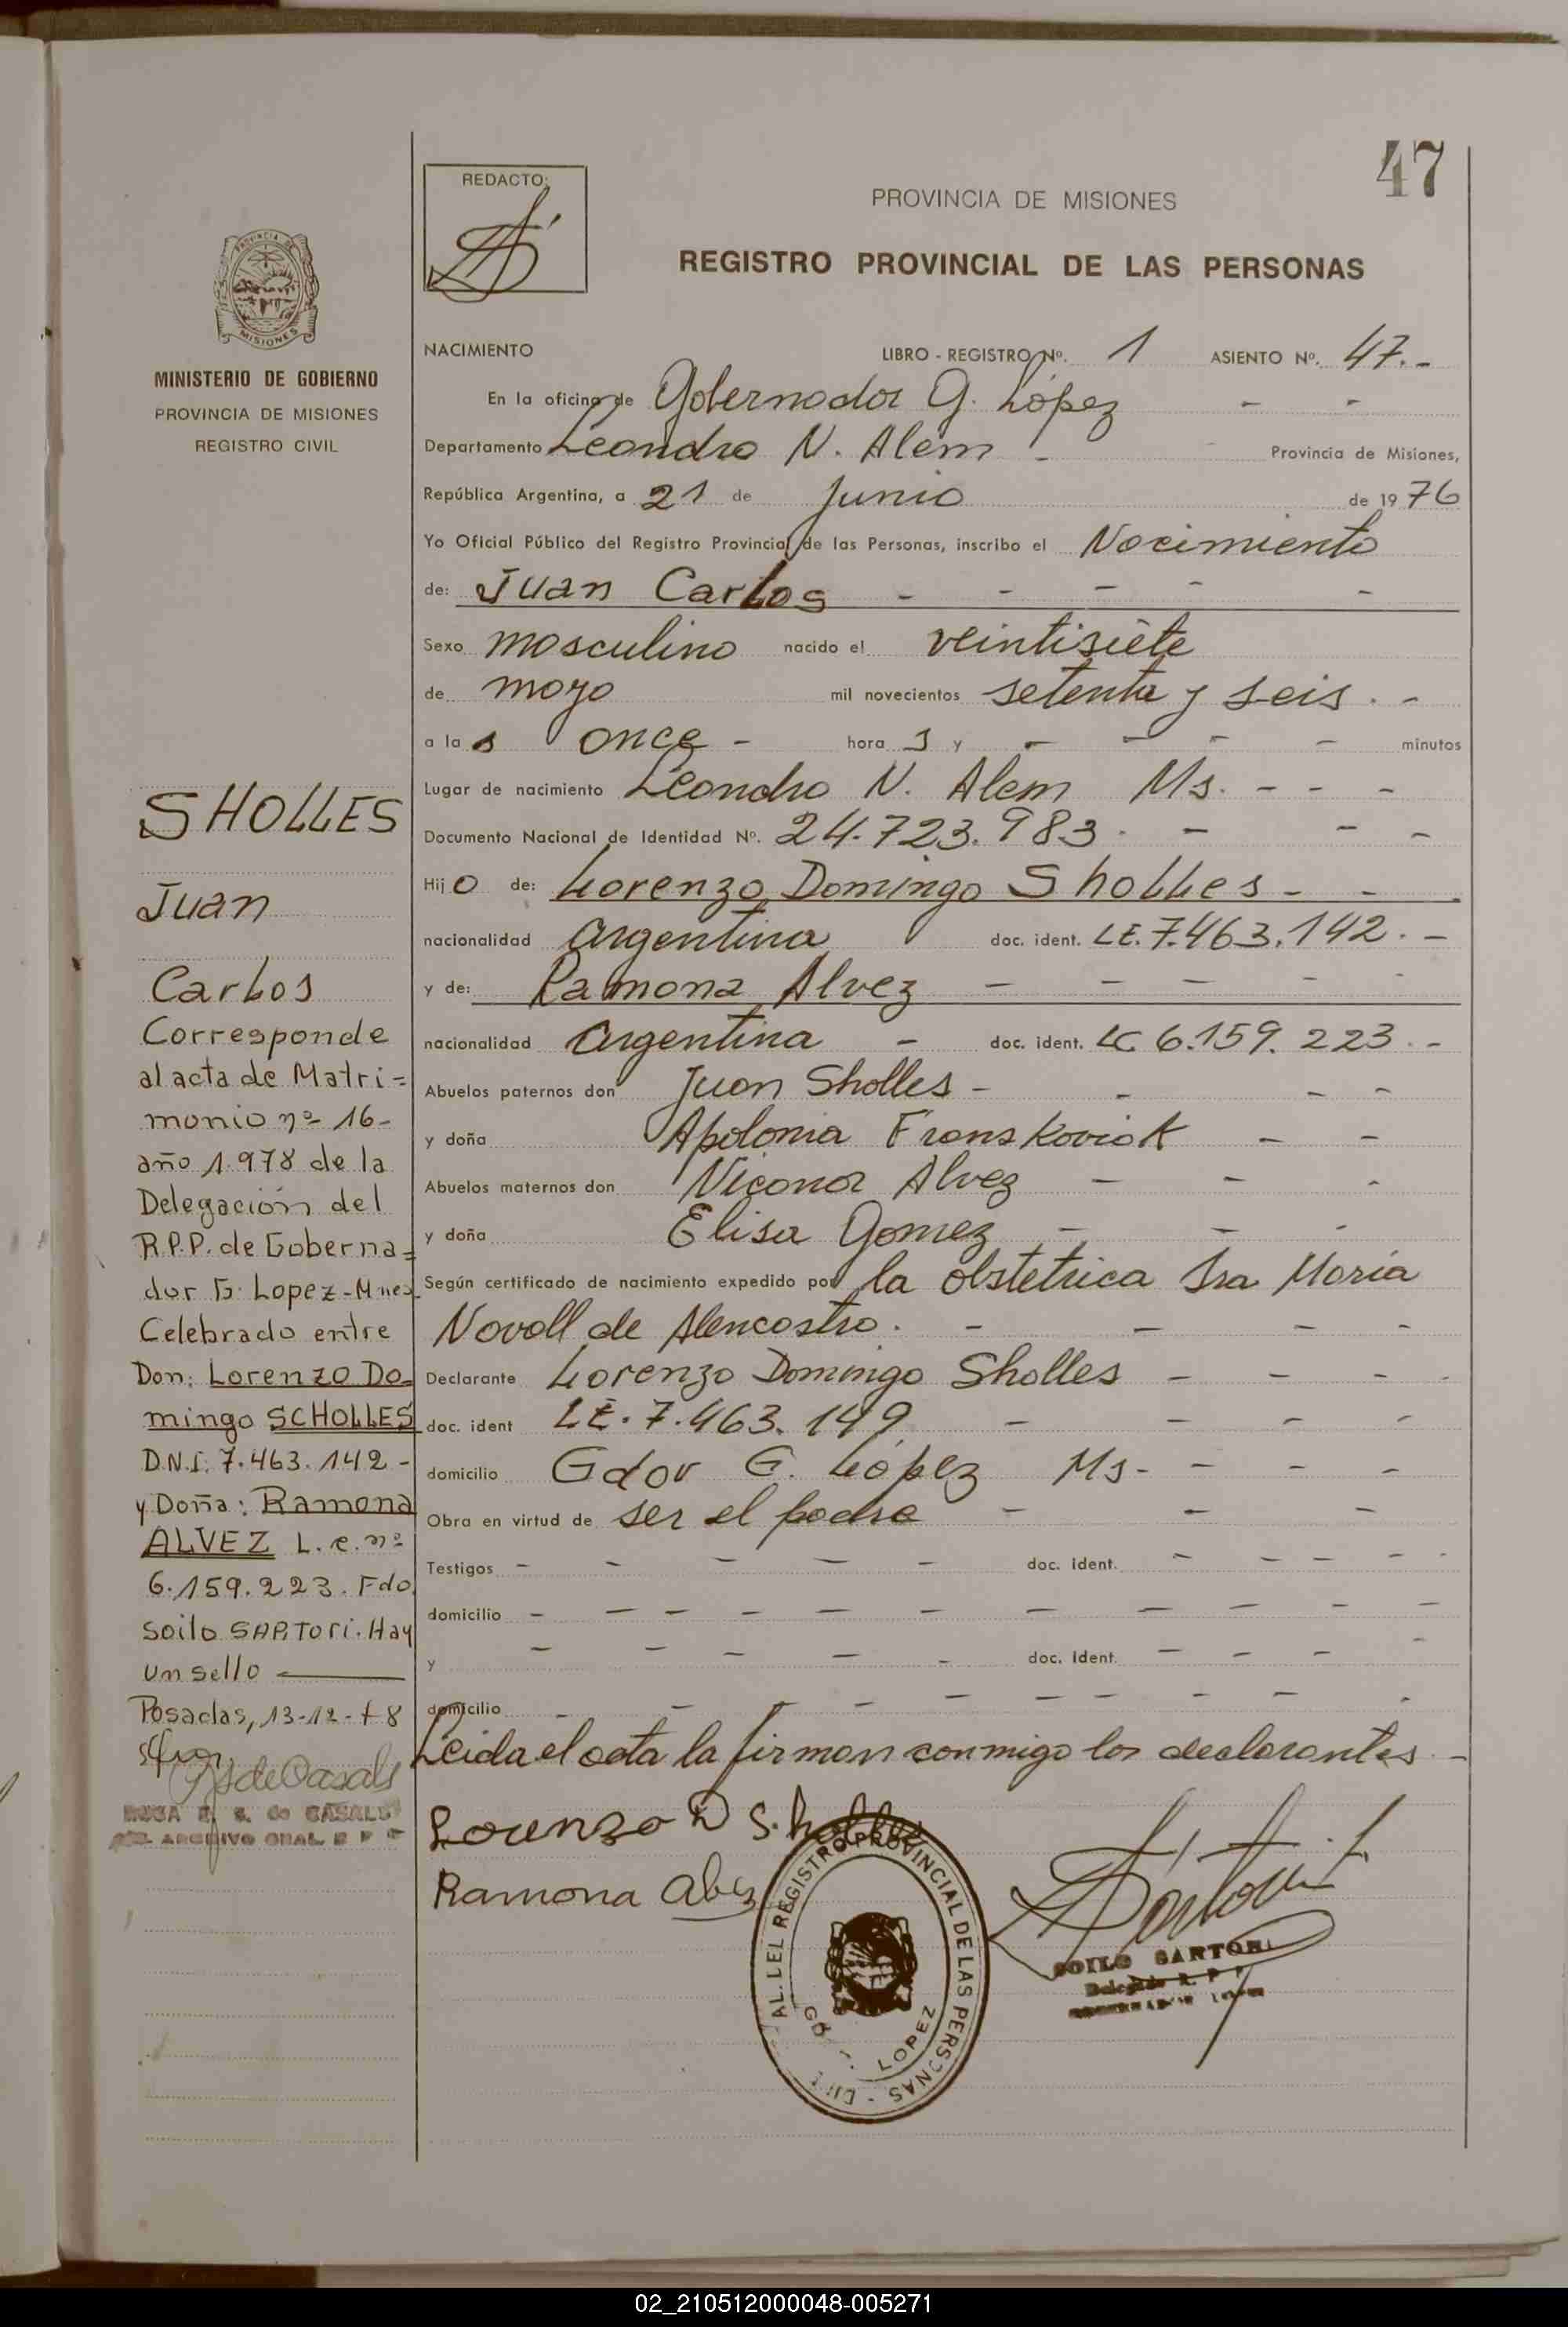 47
REDACTO:
PROVINCIA DE MISIONES
REGISTRO PROVINCIAL DE LAS PERSONAS
PROVINCIA DE
MISIONES
MINISTERIO DE GOBIERNO
PROVINCIA DE MISIONES
REGISTRO CIVIL
SHOLLES
Juan
Carlos
Corresponde
al acta de Matri=
monio nº 16-
año 1.978 de la
Delegación del
R.P.P. de Goberna=
dor G. Lopez-Mnes.
Celebrado entre
Don: Lorenzo Do=
mingo SCHOLLES
D.N.I. 7.463.142-
y Doña: Ramona
ALVEZ L.c. nº
6.159.223. Fdo.
Soilo SARTORI. Hay
un sello
Posadas, 13-12-78
de CASALS
NACIMIENTO LIBRO - REGISTRO Nº. 1 ASIENTO Nº. 47.-
En la oficina de Gobernador G. López - -
Departamento Leandro N. Alem - Provincia de Misiones,
República Argentina, a 21 de Junio de 1976
Yo Oficial Público del Registro Provincial de las Personas, inscribo el Nacimiento
de: Juan Carlos - - - - -
Sexo masculino nacido el veintisiete
de mayo mil novecientos setenta y seis. -
a las once - hora s y - - - - minutos
Lugar de nacimiento Leandro N. Alem Ms. - - -
Documento Nacional de Identidad Nº. 24.723.983. - - -
Hijo de: Lorenzo Domingo Sholles - -
nacionalidad argentina doc. ident. LE. 7.463.142. -
y de: Ramona Alvez - - - - -
nacionalidad argentina - doc. ident. LC 6.159.223. -
Abuelos paternos don Juan Sholles - - - -
y doña Apolonia Franskoviak - -
Abuelos maternos don Nicanor Alvez - - -
y doña Elisa Gomez - - -
Según certificado de nacimiento expedido por la obstetrica Sra Maria
Novoll de Alencastro. - - - -
Declarante Lorenzo Domingo Sholles - - - -
doc. ident LE. 7.463.149 - - - -
domicilio Gdor G. López Ms- - - -
Obra en virtud de ser el padre - - -
Testigos - - - - - doc. ident. - - - - -
domicilio - - - - - - - - - - -
y - - - - - doc. ident. - - - -
domicilio - - - - - - - - - -
Leida el acta la firman conmigo los declarantes. -
Lorenzo D Sholles
Ramona Alvez
REGISTRO PROVINCIAL DE LAS PERSONAS
LOPEZ
SOILO SARTORI
Delegado R. P. P.
02_210512000048-005271